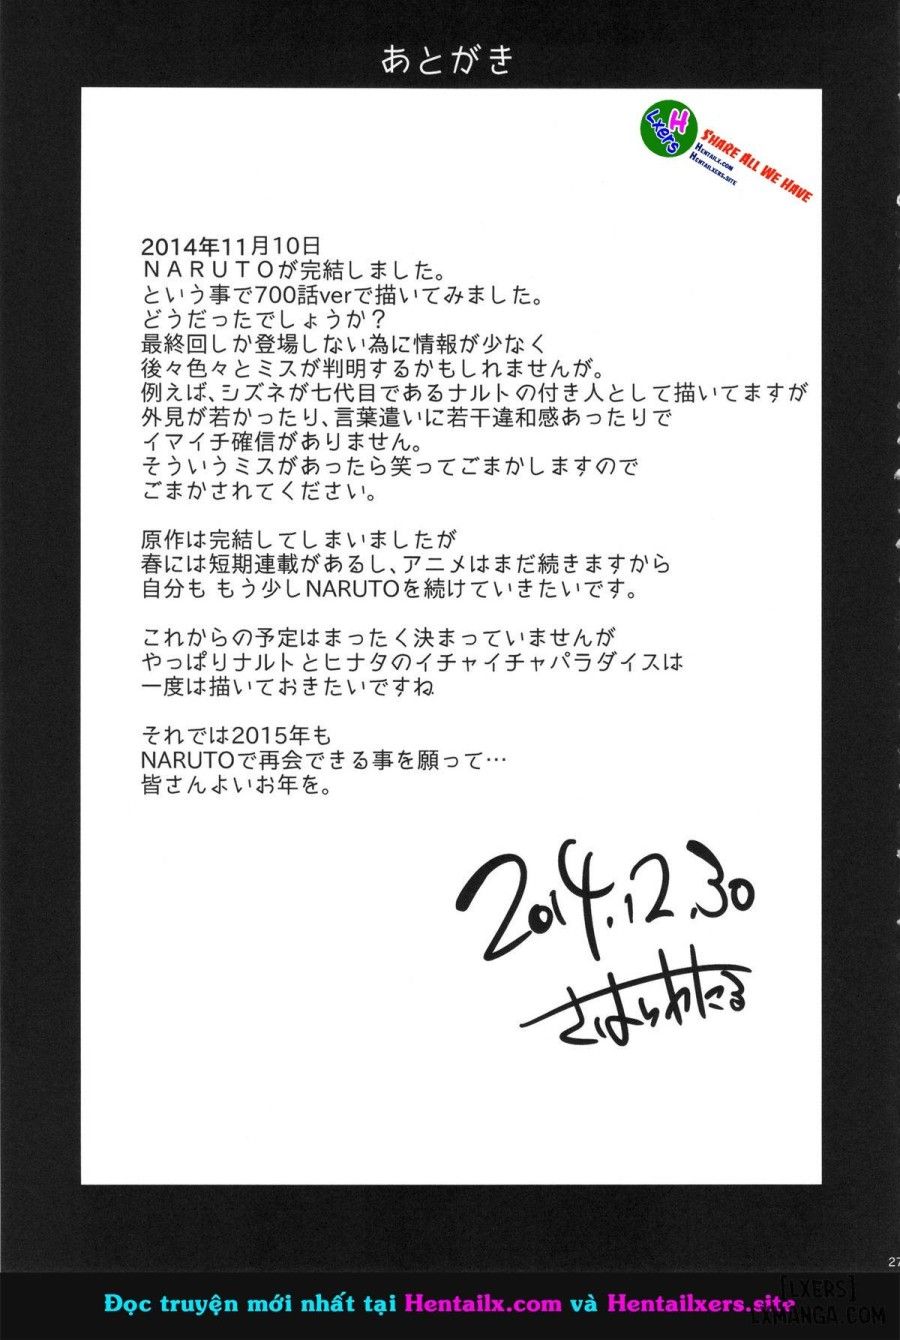 あとがき
H
Lxers
Share All We Have
Hentailx.com
Hentailxers.site
2014年11月10日
ＮＡＲＵＴＯが完結しました。
という事で700話verで描いてみました。
どうだったでしょうか？
最終回しか登場しない為に情報が少なく
後々色々とミスが判明するかもしれませんが。
例えば、シズネが七代目であるナルトの付き人として描いてますが
外見が若かったり、言葉遣いに若干違和感あったりで
イマイチ確信がありません。
そういうミスがあったら笑ってごまかしますので
ごまかされてください。
原作は完結してしまいましたが
春には短期連載があるし、アニメはまだ続きますから
自分も もう少しNARUTOを続けていきたいです。
これからの予定はまったく決まっていませんが
やっぱりナルトとヒナタのイチャイチャパラダイスは
一度は描いておきたいですね
それでは2015年も
NARUTOで再会できる事を願って…
皆さんよいお年を。
2014.12.30
さはらわたる
27
Đọc truyện mới nhất tại Hentailx.com và Hentailxers.site
[LXERS]
LXMANGA.COM